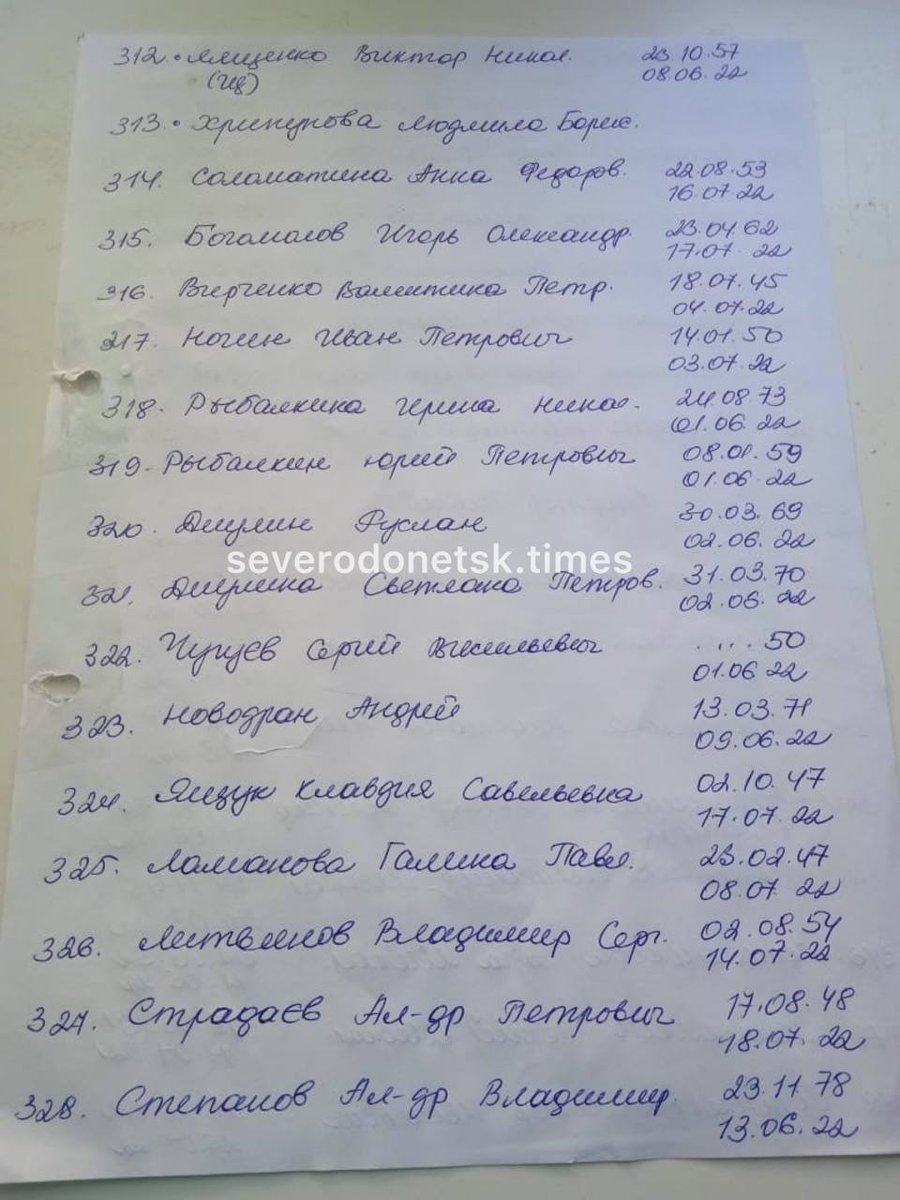 312. Ященко Виктор Никол. 23.10.57
(Иц) 08.06.22
313. Хрипунова Людмила Борис.
314. Соломатина Анна Федоров. 22.08.53
16.07.22
315. Богомолов Игорь Олександр. 23.04.62
17.07.22
316. Вирченко Валентина Петр. 18.07.45
04.07.22
217. Ногин Иван Петрович 14.01.50
03.07.22
318. Рыбалкина Ирина Никол. 24.08.73
01.06.22
319. Рыбалкин Юрий Петрович 08.01.59
01.06.22
320. Руслан 30.03.69
02.06.22
severodonetsk.times
321. Светлана Петров. 31.03.70
02.06.22
322. Чугуєв Сергий Васильевич ....50
01.06.22
323. Новодран Андрей 13.03.71
09.06.22
324. Ящук Клавдия Савельевна 02.10.47
17.07.22
325. Ломанова Галина Павл. 23.02.47
08.07.22
326. Литвинов Владимир Серг. 02.08.54
14.07.22
327. Страдаєв Ал-др Петрович 17.08.48
18.07.22
328. Степанов Ал-др Владимир. 23.11.78
13.06.22